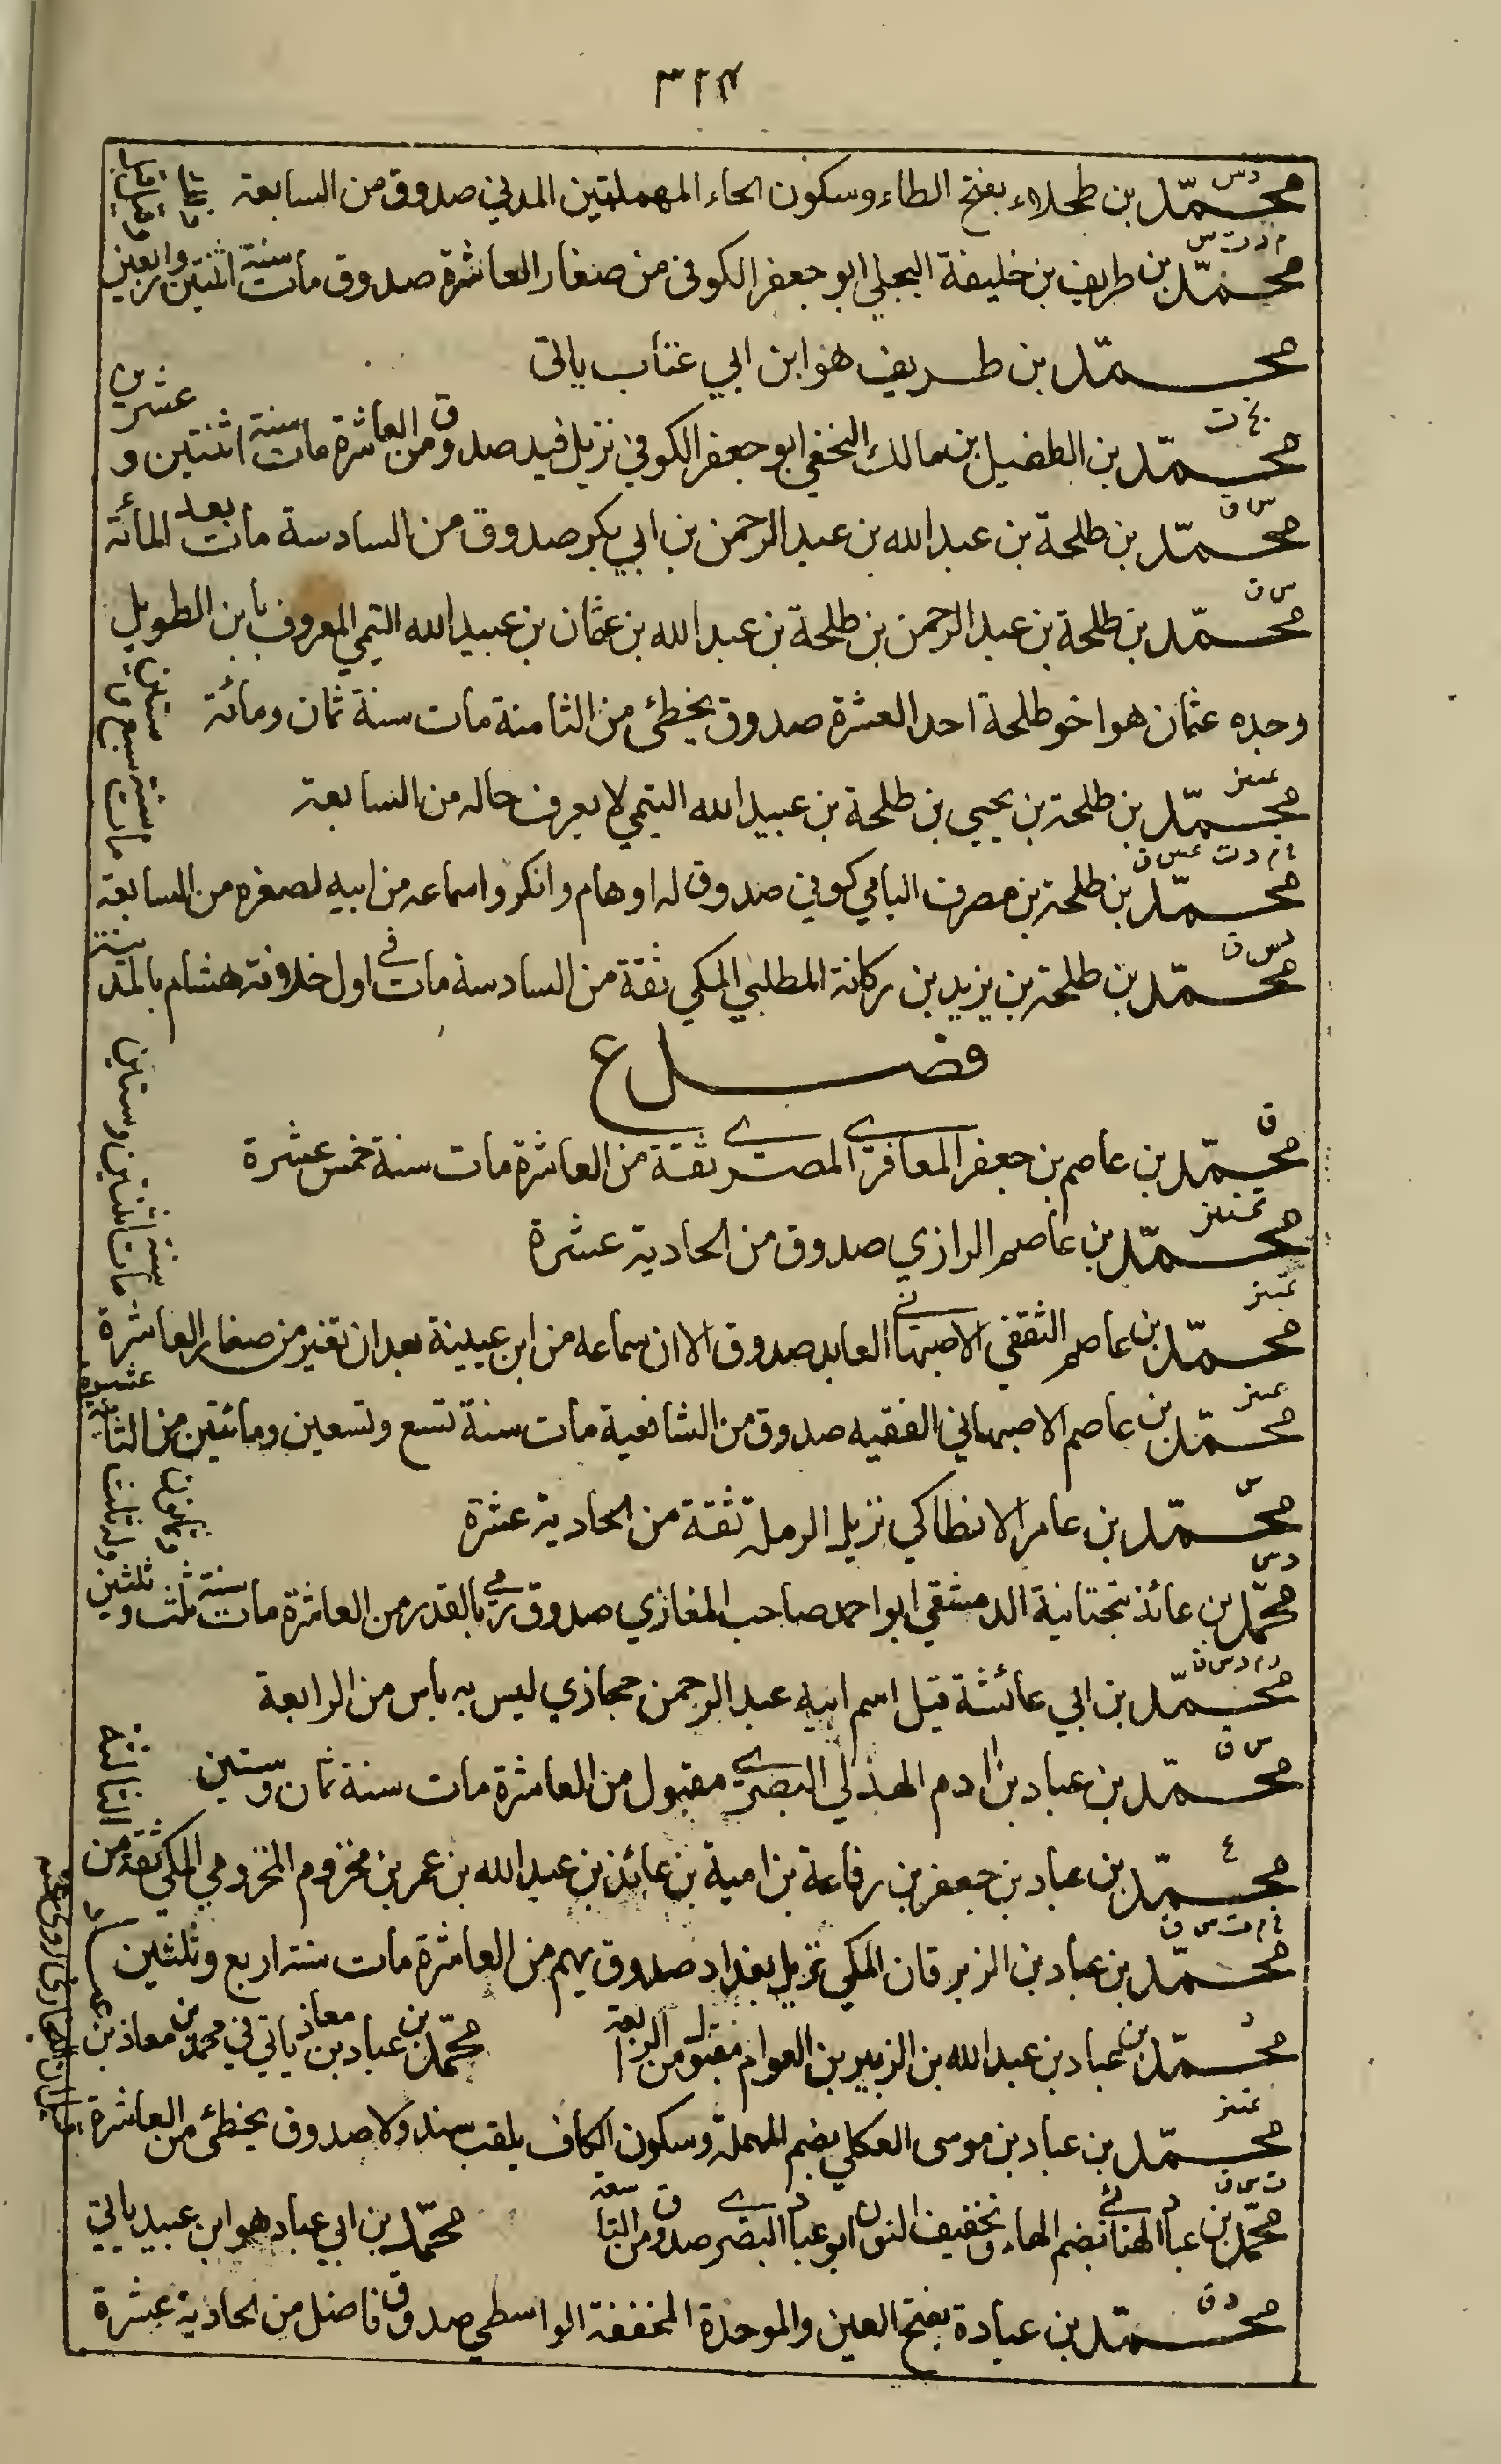 ٣١٢
د س
محمّد بن طحلاء بفتح الطاء وسكون الحاء المهملتين المدني صدوق من السابعة
م د ت س
محمّد بن طريف بن خليفة البجلي ابو جعفر الكوفي من صغار العاشرة صدوق مات سنة اثنتين واربعين
محمّد بن طريف هو ابن ابي عتاب ياتي
خ ت
محمّد بن الطفيل بن مالك النخعي ابو جعفر الكوفي نزيل فيد صدوق من العاشرة مات سنة اثنتين و عشرين
س ق
محمّد بن طلحة بن عبد الله بن عبد الرحمن بن ابي بكر صدوق من السادسة مات بعد المائة
س ق
محمّد بن طلحة بن عبد الرحمن بن طلحة بن عبد الله بن عثمان بن عبيد الله التيمي المعروف بابن الطويل
وجده عثمان هو اخو طلحة احد العشرة صدوق يخطئ من الثامنة مات سنة ثمان ومائة
تمييز
محمّد بن طلحة بن يحيى بن طلحة بن عبيد الله التيمي لا يعرف حاله من السابعة
خ م د ت عس ق
محمّد بن طلحة بن مصرف اليامي كوفي صدوق له اوهام وانكروا سماعه من ابيه لصغره من السابعة
مات سنة سبع وستين
د س ق
محمّد بن طلحة بن يزيد بن ركانة المطلبي المكي ثقة من السادسة مات في اول خلافة هشام بالمدينة
فصل ع
ق
محمّد بن عاصم بن جعفر المعافري المصري ثقة من العاشرة مات سنة خمس عشرة
تمييز
محمّد بن عاصم الرازي صدوق من الحادية عشرة
تمييز
محمّد بن عاصم الثقفي الاصبهاني العابد صدوق الا ان سماعه من ابن عيينة بعد ان تغير من صغار العاشرة
مات سنة اثنتين وستين
تمييز
محمّد بن عاصم الاصبهاني الفقيه صدوق من الشافعية مات سنة تسع وتسعين ومائتين من الثانية عشرة
س
محمّد بن عامر الانطاكي نزيل الرملة ثقة من الحادية عشرة
د س
محمّد بن عائذ بتحتانية الدمشقي ابو احمد صاحب المغازي صدوق رمي بالقدر من العاشرة مات سنة ثلث و ثلثين
وله ثلث وثمانون
ر م د س ق
محمّد بن ابي عائشة قيل اسم ابيه عبد الرحمن حجازي ليس به باس من الرابعة
س ق
محمّد بن عباد بن ادم الهذلي البصري مقبول من العاشرة مات سنة ثمان وستين
ع
محمّد بن عباد بن جعفر بن رفاعة بن امية بن عائذ بن عبد الله بن عمر بن مخزوم المخزومي المكي ثقة من الثالثة
خ م ت س ق
محمّد بن عباد بن الزبرقان المكي نزيل بغداد صدوق يهم من العاشرة مات سنة اربع وثلثين
د
محمّد بن عباد بن عبد الله بن الزبير بن العوام مقبول من الرابعة
محمّد بن عباد بن معاذ ياتي في محمد بن معاذ بن عباد
تمييز
محمّد بن عباد بن موسى العكلي بضم المهملة وسكون الكاف يلقب سندولا صدوق يخطئ من العاشرة
ت س ق
محمّد بن عباد الهنائي بضم الهاء وتخفيف النون ابو عباد البصري صدوق من التاسعة
محمّد بن ابي عباد هو ابن عبيد ياتي
د ق
محمّد بن عبادة بفتح العين والموحدة المخففة الواسطي صدوق فاضل من الحادية عشرة